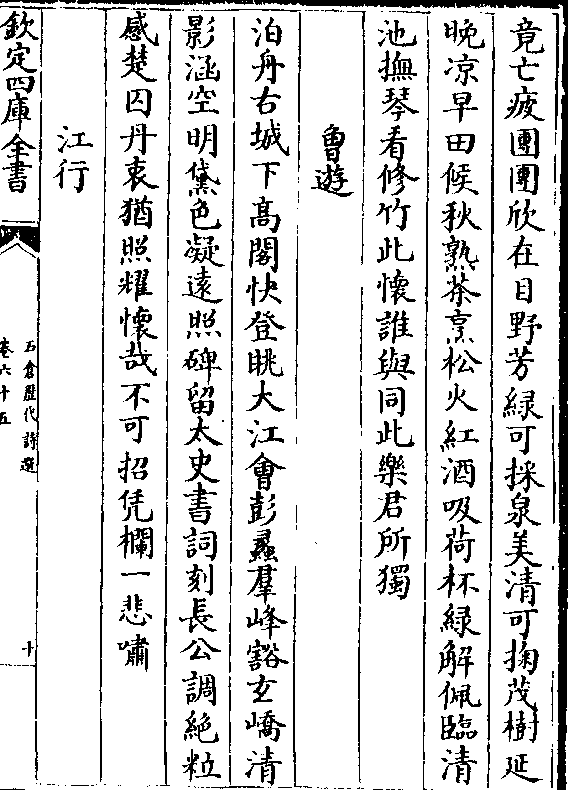 竟亡疲團團欣在目野芳緑可採泉美清可掬茂樹延
晚凉早田候秋熟茶烹松火紅酒吸荷杯緑解佩臨清
池撫琴看修竹此懷誰與同此樂君所獨
魯遊
泊舟古城下髙閣快登眺大江會彭蠡羣峰豁玄嶠清
影涵空明黛色凝遠照碑留太史書詞刻長公調絶粒
感楚囚丹衷猶照耀懷哉不可招凭欄一悲嘯
江行
欽定四庫全書
石倉歷代詩選
卷六十五
十